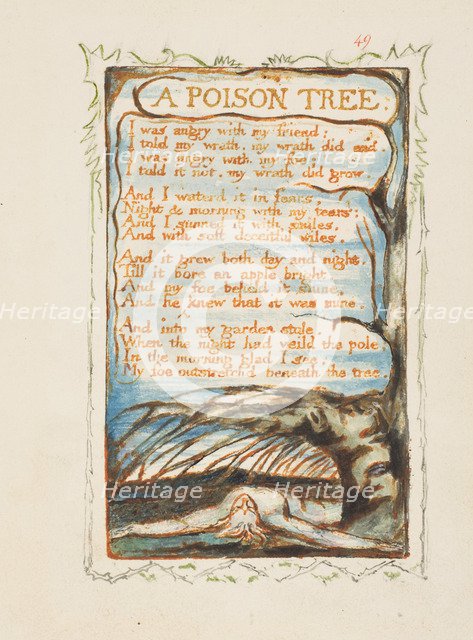 49
A POISON TREE.
I was angry with my friend:
I told my wrath, my wrath did end.
I was angry with my foe:
I told it not, my wrath did grow.
And I waterd it in fears,
Night & morning with my tears:
And I sunned it with smiles,
And with soft deceitful wiles.
And it grew both day and night,
Till it bore an apple bright.
And my foe beheld it shine,
And he knew that it was mine.
And into my garden stole.
When the night had veild the pole;
In the morning glad I see,
My foe outstretchd beneath the tree.
Heritage
Heritage
Heritage
Heritage
Heritage
Heritage